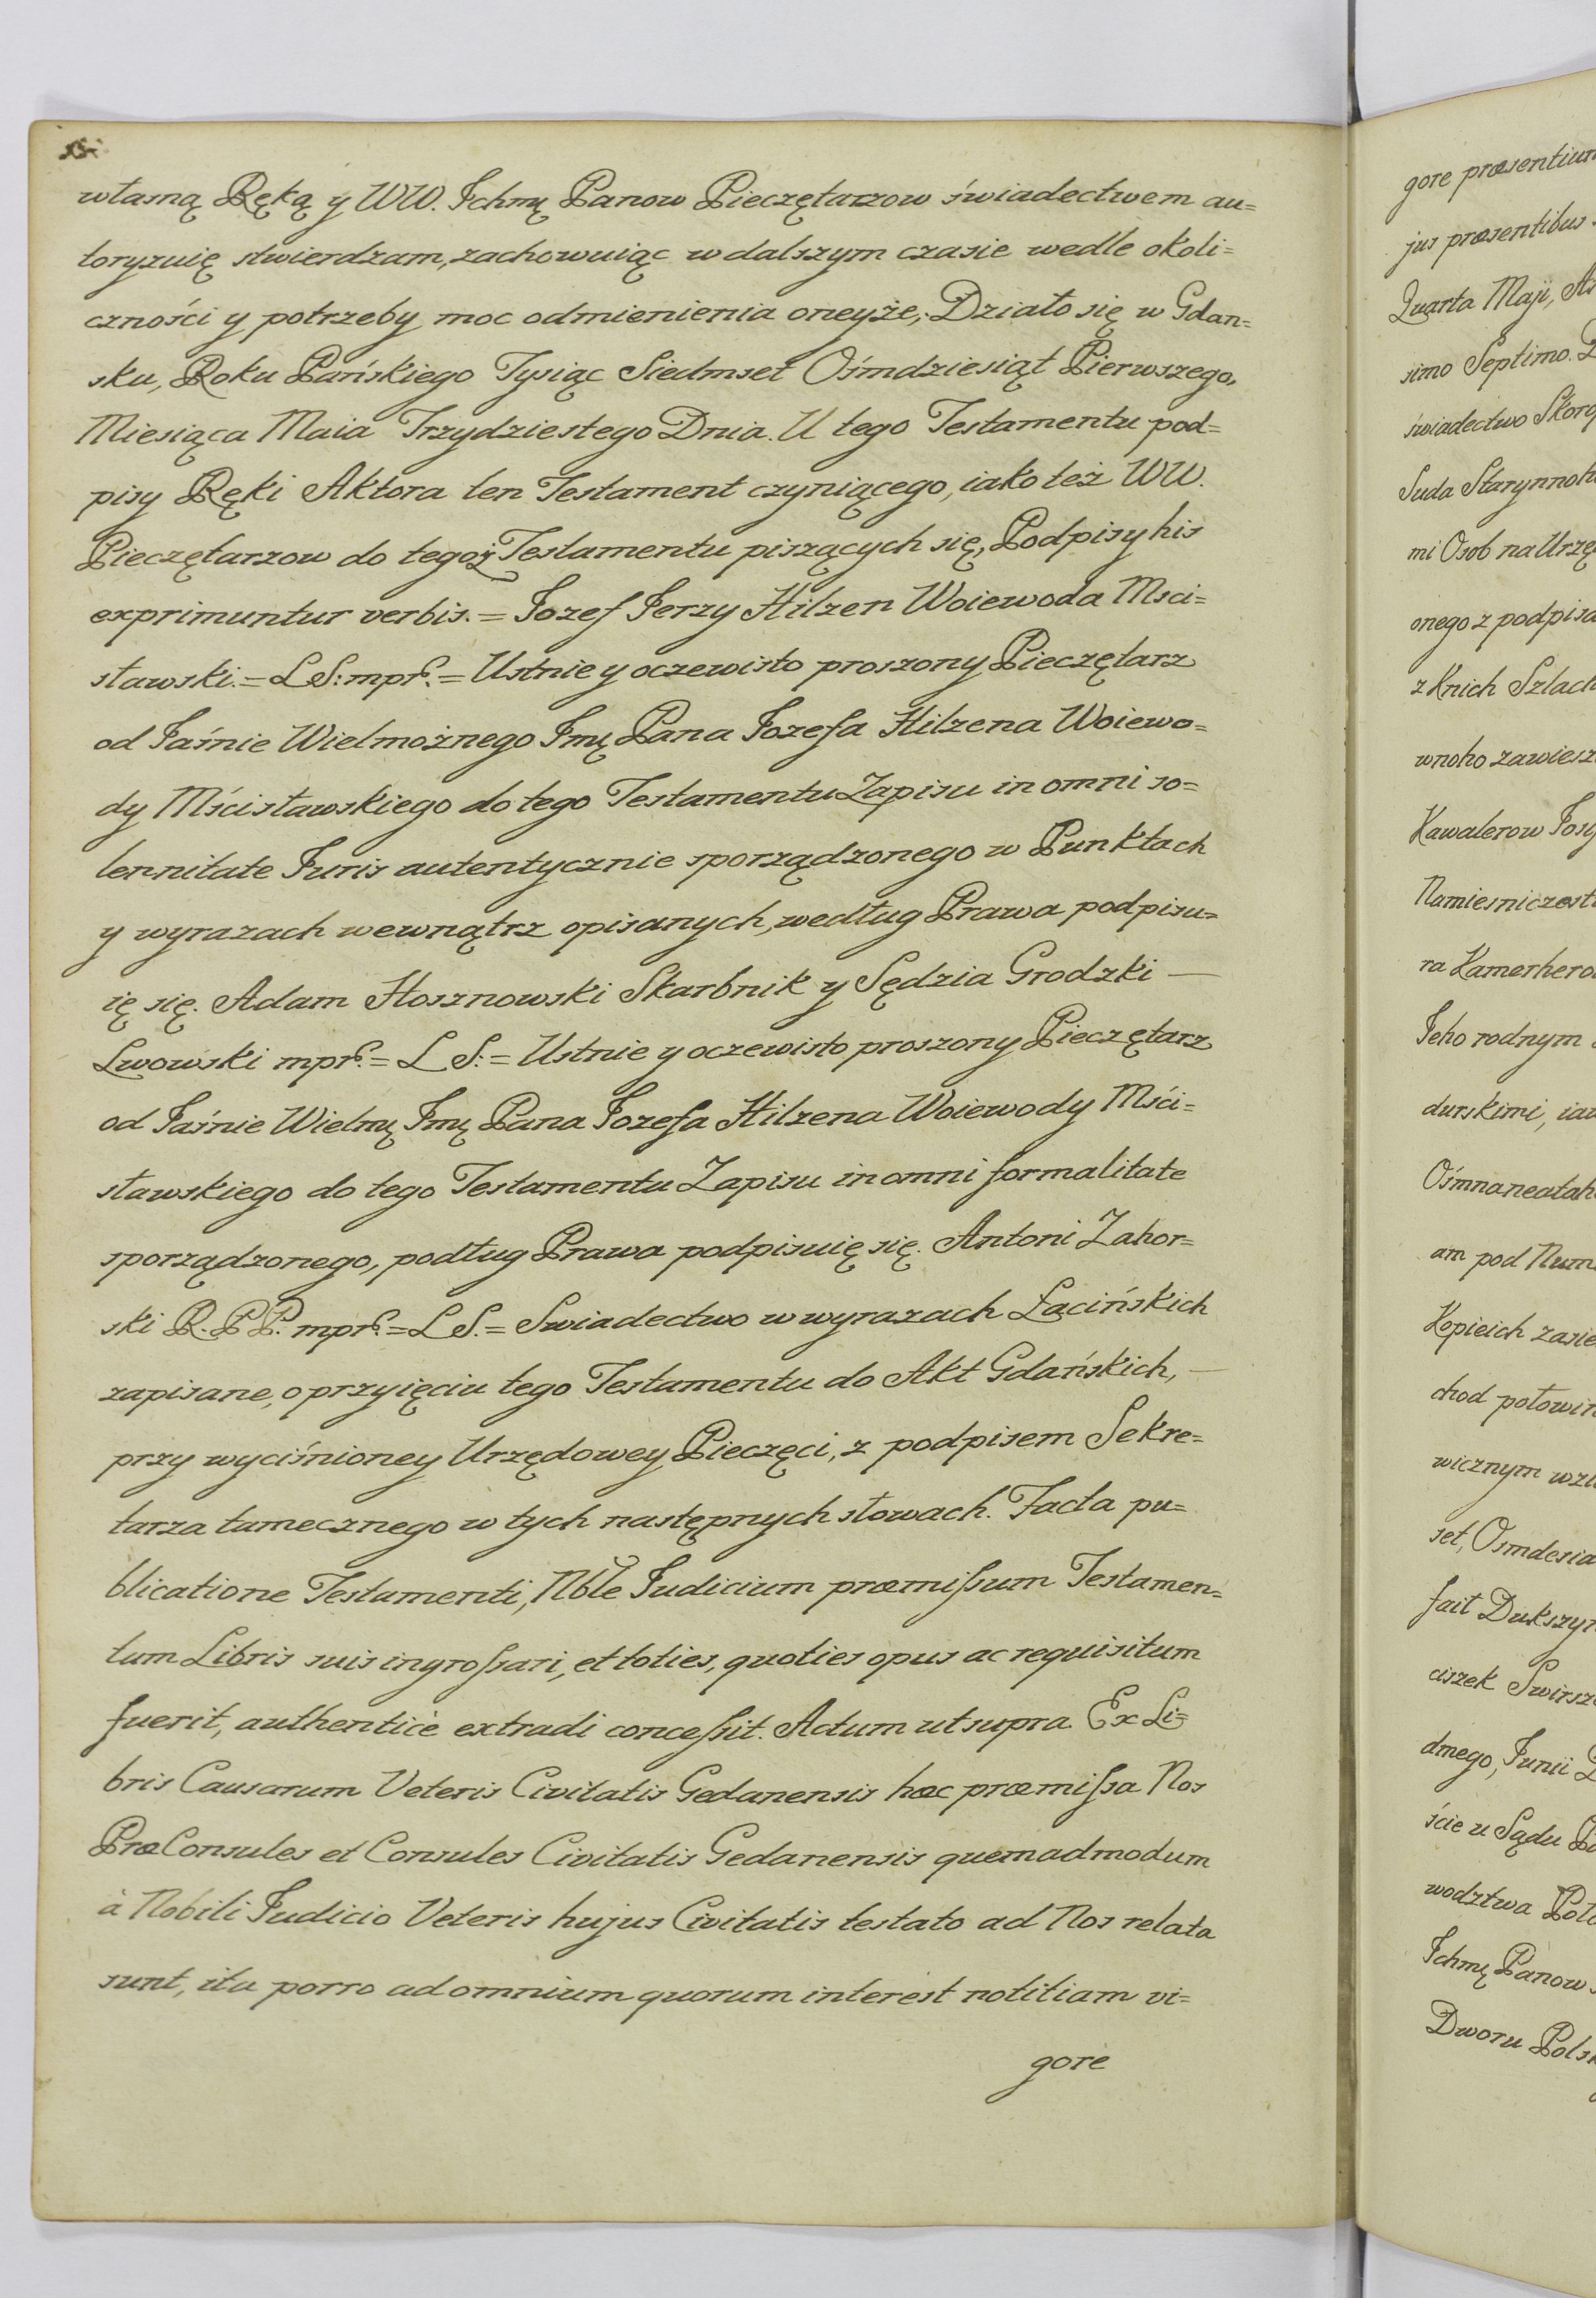 własną Ręką y WW. Ichmę Panow Pieczętarzow świadectwem au=
toryzuię stwierdzam, zachowuiąc w dalszym czasie wedle okoli=
czności y potrzeby moc odmienienia oneyże; Działo się w Gdan=
sku, Roku Pańskiego Tysiąc Siedmset Ośmdziesiąt Pierwszego,
Miesiąca Maia Trzydziestego Dnia. U tego Testamentu pod=
pisy Ręki Aktora ten Testament czyniącego, iako też WW.
Pieczętarzow do tegoż Testamentu piszących się, Podpisy his
exprimuntur verbis. = Iozef Ierzy Hilzen Woiewoda Msci=
sławski. = L S: mpr. = Ustnie y oczewisto proszony Pieczętarz
od Iaśnie Wielmożnego Imę Pana Iozefa Hilzena Woiewo=
dy Mścisławskiego do tego Testamentu Zapisu in omni so=
lennitate Iuris autentycznie sporządzonego w Punktach
y wyrazach wewnątrz opisanych, według Prawa podpisu=
ię się. Adam Hosznowski Skarbnik y Sędzia Grodzki —
Lwowski mpr. = L S: = Ustnie y oczewisto proszony Pieczętarz
od Iaśnie Wielmę Imę Pana Iozefa Hilzena Woiewody Mści=
sławskiego do tego Testamentu Zapisu in omni formalitate
sporządzonego, podług Prawa podpisuię się. Antoni Zahor=
ski R. P P. mpr. = L S. = Swiadectwo w wyrazach Łacińskich
zapisane, o przyięciu tego Testamentu do Akt Gdańskich, —
przy wyciśnioney Urzędowey Pieczęci, z podpisem Sekre=
tarza tamecznego w tych następnych słowach. Facta pu=
blicatione Testamenti, Nble Iudicium præmiſsum Testamen=
tum Libris suis ingroſsari, et toties, quoties opus ac requisitum
fuerit, authenticè extradi conceſsit. Actum ut supra. Ex Li=
bris Causarum Veteris Civitatis Gedanensis hæc præmiſsa Nos
PræConsules et Consules Civitatis Gedanensis quemadmodum
à Nobili Iudicio Veteris hujus Civitatis testato ad Nos relata
sunt, ita porro ad omnium quorum interest notitiam vi=
gore
gore præsentium
jus præsentibus
Quarta Maji,
simo Septimo.
świadectwo
Suda
mi Osob na
onego z
z Knich
wnoho
Kawalerow
ra
Jeho rodnym
durskimi,
am pod
Kopieich
chod
wicznym
set,
fait
ciszek
dmego, Junii
ście u Sądu
wodztwa
Ichmę Panow
Dworu